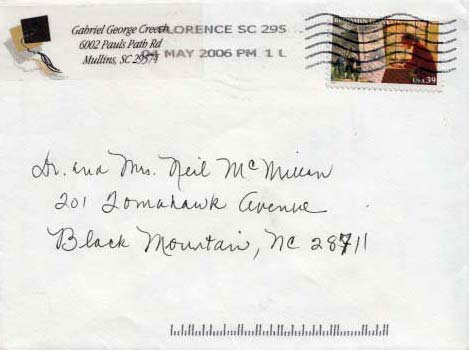 Gabriel George Creech
6002 Pauls Path Rd
Mullins, SC 29574
FLORENCE SC 295
04 MAY 2006 PM 1 L
BENJAMIN
USA 39
Dr. and Mrs. Neil McMillan
201 Tomahawk Avenue
Black Mountain, NC 28711